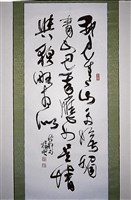 我見青山多嫵媚
青山見我應如是情
與貌略相似